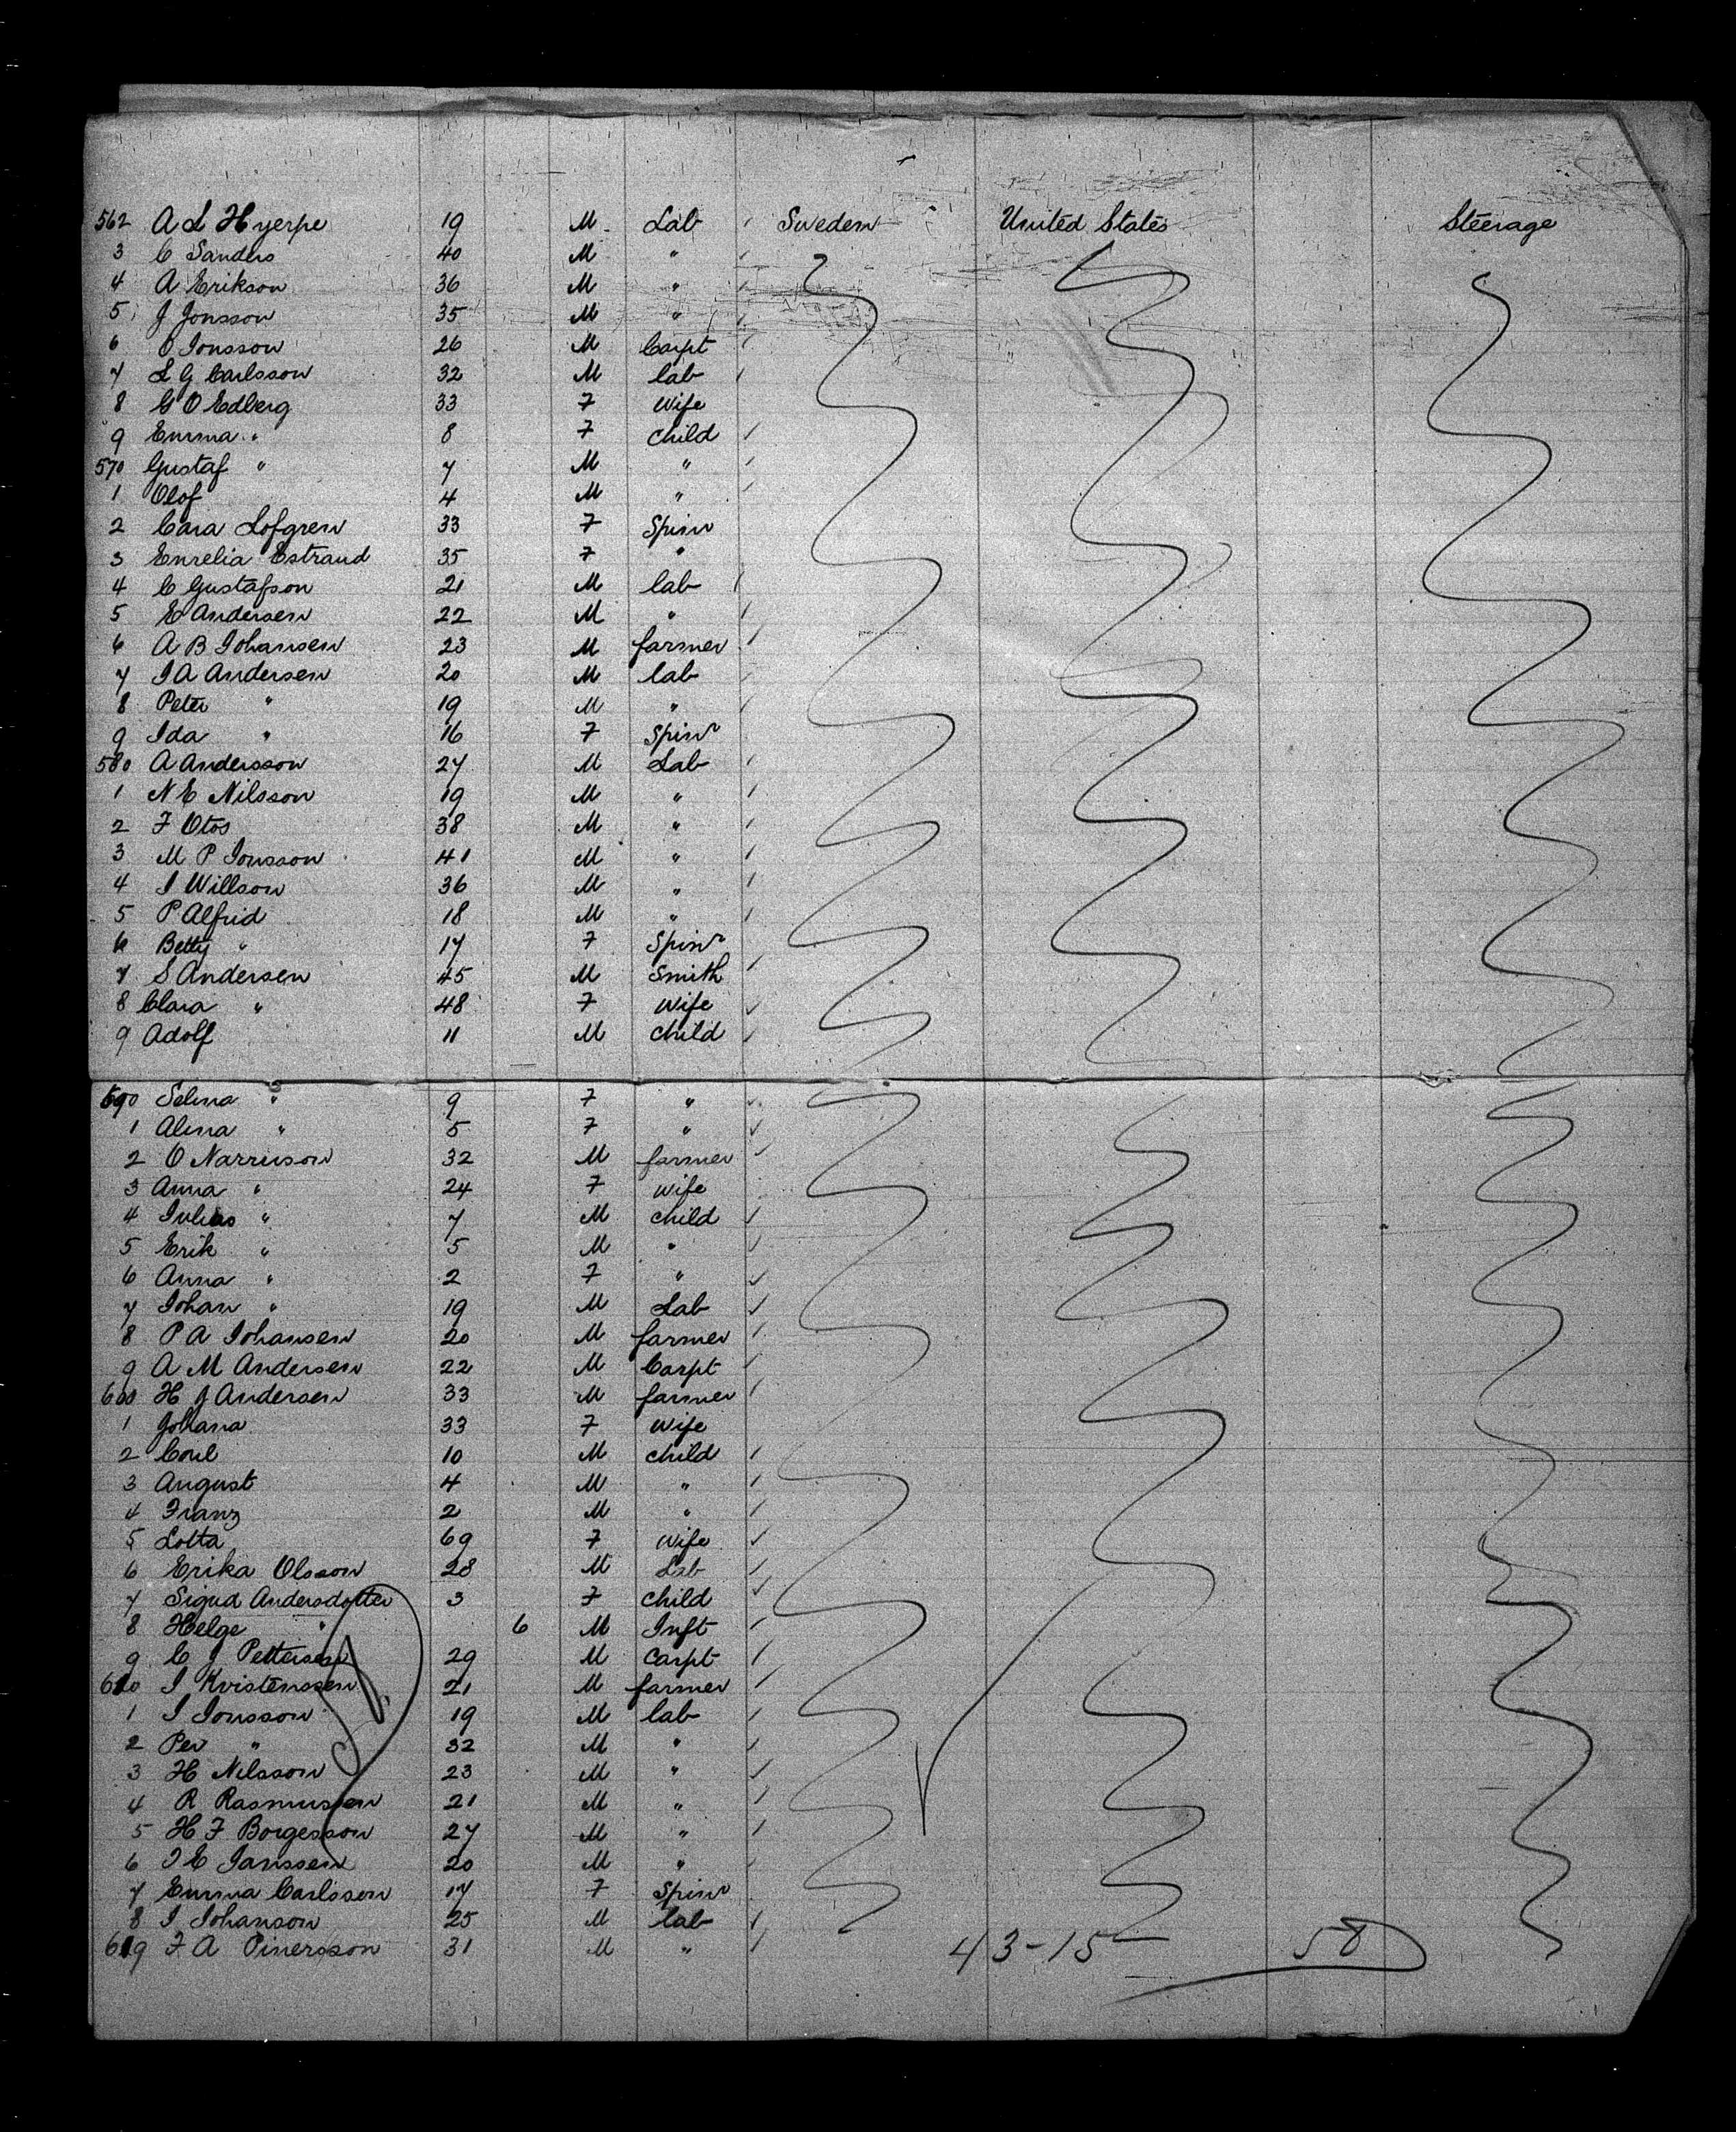 562 A L Hyerpe 19 M Lab Sweden United States Steerage
3 C Sanders 40 M "
4 A Erikson 36 M "
5 J Jonsson 35 M "
6 O Jonsson 26 M Carpt
7 L G Carlsson 32 M lab
8 G O Edberg 33 F Wife
9 Emma " 8 F Child
570 Gustaf " 7 M "
1 Olof 4 M "
2 Cara Lofgren 33 F Spinr
3 Emelia Estraud 35 F "
4 C Gustafson 21 M lab
5 E Andersen 22 M "
6 A B Johansen 23 M farmer
7 J A Andersen 20 M lab
8 Peter " 19 M "
9 Ida " 16 F Spinr
580 A Andersson 27 M Lab
1 N E Nilsson 19 M "
2 F Otos 38 M "
3 M P Jonsson 41 M "
4 J Willson 36 M "
5 P Alfrid 18 M "
6 Betty " 17 F Spinr
7 S Andersen 45 M Smith
8 Clara " 48 F Wife
9 Adolf 11 M Child
590 Selma " 9 F "
1 Alma " 5 F "
2 O Narruson 32 M farmer
3 Anna " 24 F Wife
4 Julius " 7 M Child
5 Erik " 5 M "
6 Anna " 2 F "
7 Johan " 19 M Lab
8 P A Johansen 20 M farmer
9 A M Andersen 22 M Carpt
600 H J Andersen 33 M farmer
1 Johana 33 F Wife
2 Carl 10 M Child
3 August 4 M "
4 Franz 2 M "
5 Lotta 69 F Wife
6 Erika Olsson 28 M Lab
7 Sigrid Andersdotter 3 F Child
8 Helge " 6 M Inft
9 C J Pettersen 29 M Carpt
610 J Kvistenssen 21 M farmer
1 J Jonsson 19 M lab
2 Per " 32 M "
3 H Nilsson 23 M "
4 R Rasmussen 21 M "
5 H F Borgesson 27 M "
6 J E Janssen 20 M "
7 Emma Carlssen 17 F Spinr
8 J Johanson 25 M lab
619 F A Pinersson 31 M " 43-15 58